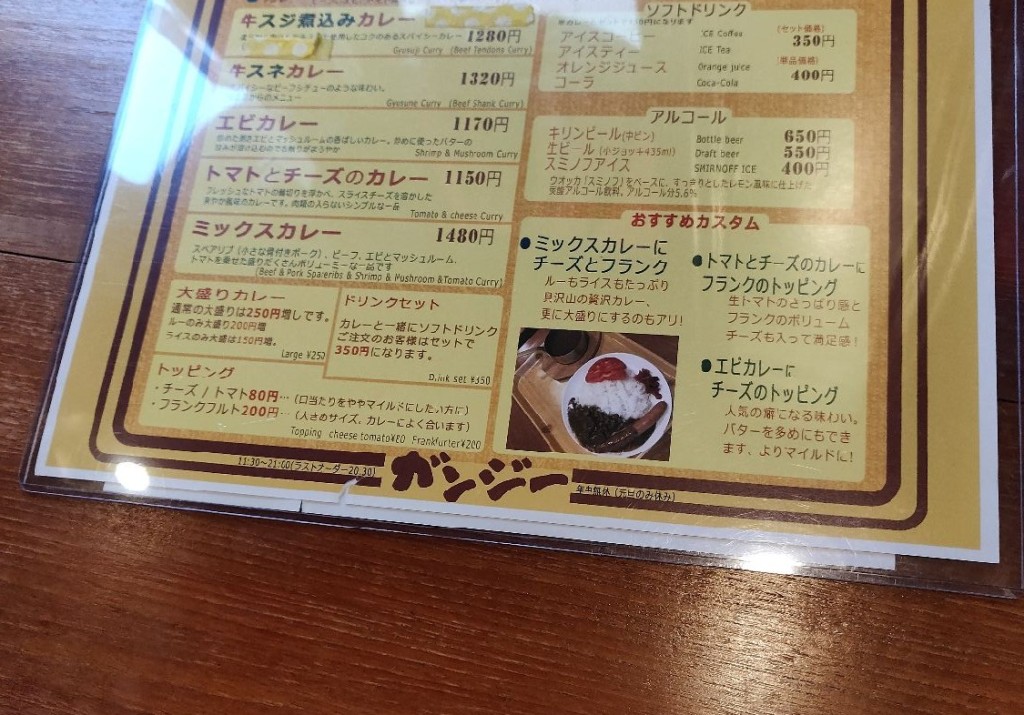 牛スジ煮込みカレー
1280円
Gyusuji Curry (Beef Tendons Curry)
牛スネカレー 1320円
Gyusune Curry (Beef Shank Curry)
エビカレー 1170円
Shrimp & Mushroom Curry
トマトとチーズのカレー 1150円
フレッシュなトマトの輪切りを浮かべ、スライスチーズを溶かした
爽やか風味のカレーです。肉類の入らないシンプルな一品
Tomato & cheese Curry
ミックスカレー 1480円
スペアリブ(小さな骨付きポーク)、ビーフ、エビとマッシュルーム、
トマトを乗せた盛りだくさんボリューミーな一品です
(Beef & Pork Spareribs & Shrimp & Mushroom &Tomato Curry)
大盛りカレー
通常の大盛りは250円増しです。
ルーのみ大盛り200円増
ライスのみ大盛は150円増。
Large ¥250
ドリンクセット
カレーと一緒にソフトドリンク
ご注文のお客様はセットで
350円になります。
Drink set ¥350
トッピング
・チーズ / トマト80円…(口当たりをややマイルドにしたい方に)
・フランクフルト200円…(大きめサイズ、カレーによく合います)
Topping cheese tomato¥80 Frankfurter¥200
ソフトドリンク
アイスコーヒー ICE Coffee
アイスティー ICE Tea
オレンジジュース Orange juice
コーラ Coca-Cola
(セット価格)
350円
(単品価格)
400円
アルコール
キリンビール(中ビン) Bottle beer 650円
生ビール (小ジョッキ435ml) Draft beer 550円
スミノフアイス SMIRNOFF ICE 400円
ウオッカ「スミノフ」をベースに、すっきりとしたレモン風味に仕上げた
炭酸アルコール飲料、アルコール分5.6%
おすすめカスタム
●ミックスカレーに
チーズとフランク
ルーもライスもたっぷり
具沢山の贅沢カレー、
更に大盛りにするのもアリ!
●トマトとチーズのカレーに
フランクのトッピング
生トマトのさっぱり感と
フランクのボリューム
チーズも入って満足感!
●エビカレーに
チーズのトッピング
人気の癖になる味わい。
バターを多めにもでき
ます、よりマイルドに!
11:30~21:00(ラストオーダー20:30)
ガンジー